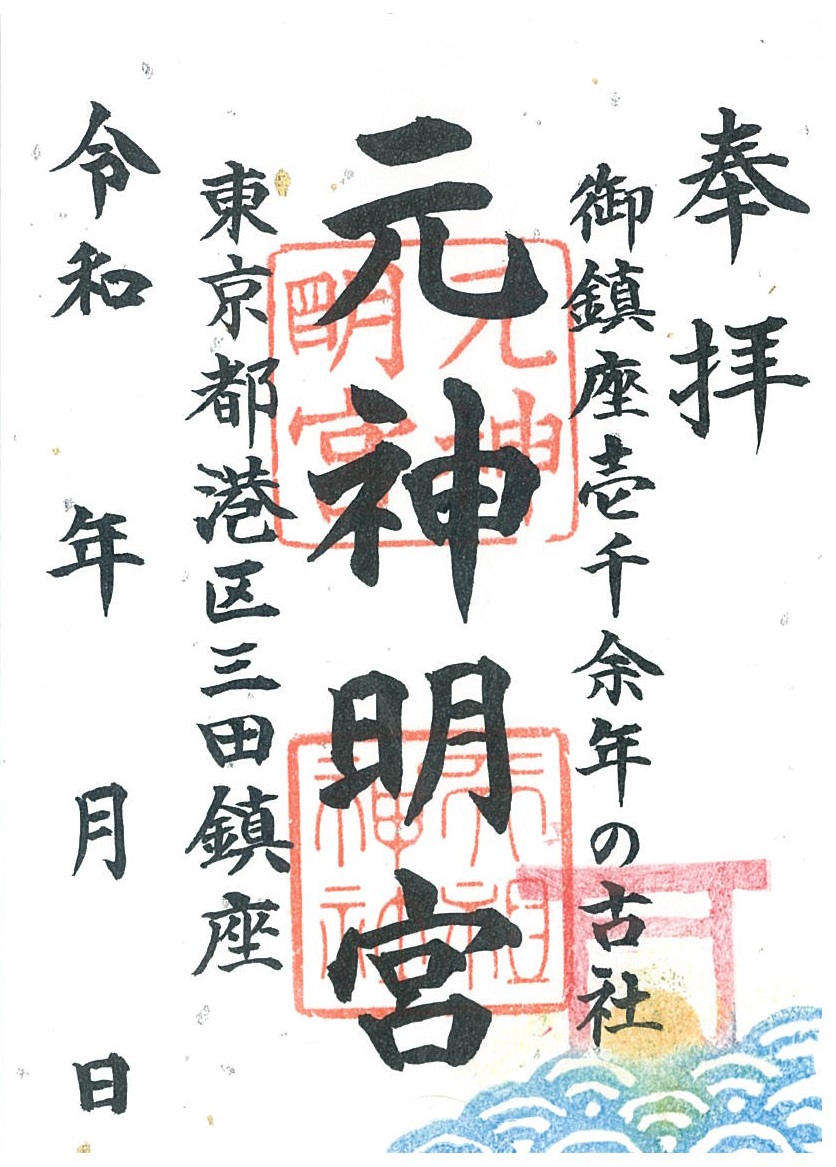 奉拝
御鎮座壱千余年の古社
元神明宮
東京都港区三田鎮座
令和 年 月 日
元神
明宮
天祖
神社